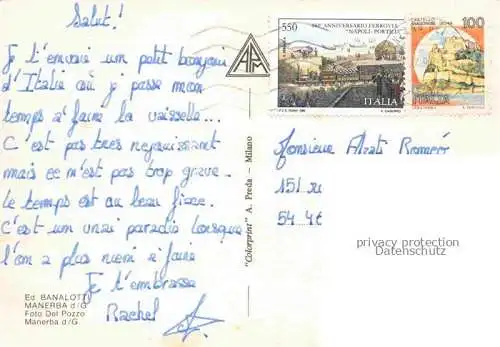 Salut!
Je t'envoie un petit bonjour
d'Italie où je passe mon
temps a' faire la vaisselle...
C'est pas tres rejouissant
mais ce n'est pas trop grave.
le temps est au beau fixe.
C'est un vrai paradis lorsque
l'on a plus rien a' faire
Je t'embrasse
Rachel
Ed. BANALOTTI
MANERBA d/G
Foto Del Pozzo
Manerba d/G.
"Colorprint" A. Preda — Milano
550
150° ANNIVERSARIO FERROVIA
"NAPOLI-PORTICI"
ITALIA
CASTELLO
100
ITALIA
Monsieur
151
54
privacy protection
Datenschutz